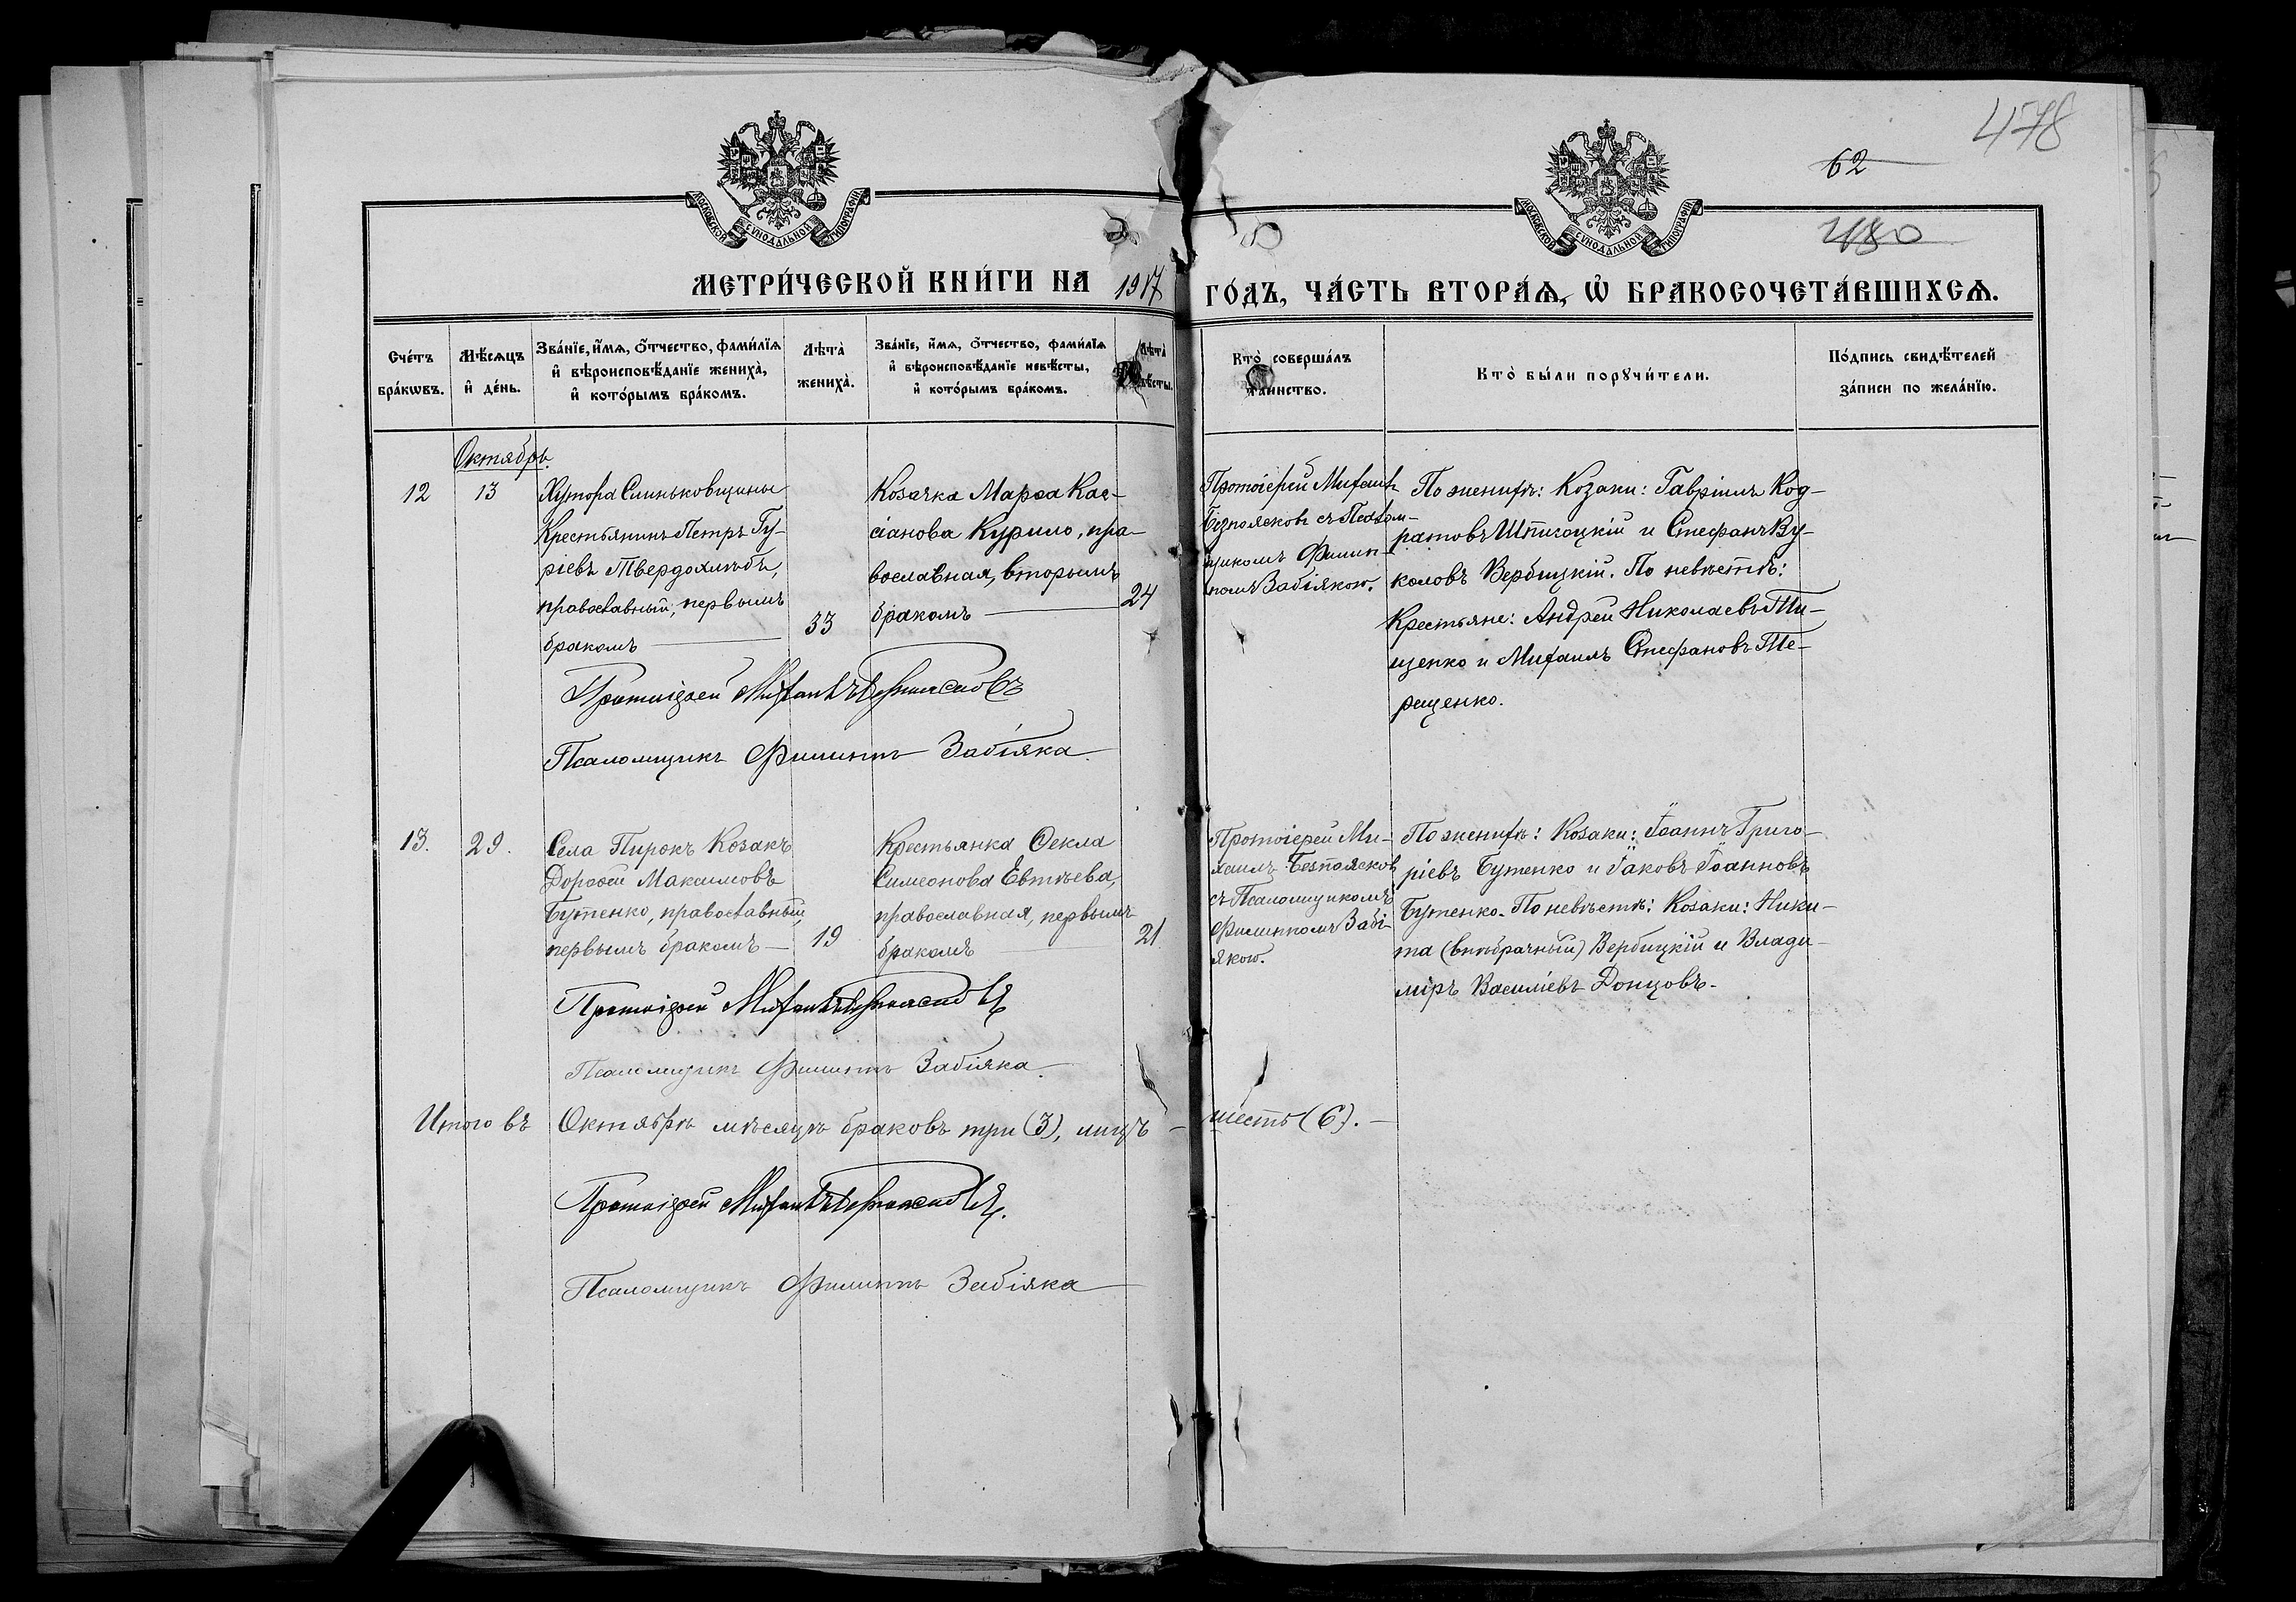 478
62
480
МОСКОВСКОЙ СѴНОДАЛЬНОЙ ТИПОГРАФІИ
МОСКОВСКОЙ СѴНОДАЛЬНОЙ ТИПОГРАФІИ
МЕТРИ́ЧЕСКОЙ КНИ́ГИ НА 1917 ГО́ДЪ, ЧА́СТЬ ВТОРА́Ѧ, Ѡ҆ БРАКОСОЧЕТА́ВШИХСѦ.
Сче́тъ бра́кωвъ.
Мѣ́сѧцъ и҆ де́нь.
Зва́нїе, и҆́мѧ, ѻ҆́тчество, фами́лїѧ
и҆ вѣроисповѣ́данїе жениха̀,
и҆ кото́рымъ бра́комъ.
Лѣта̀ жениха̀.
Зва́нїе, и҆́мѧ, ѻ҆́тчество, фами́лїѧ
и҆ вѣроисповѣ́данїе невѣ́сты,
и҆ кото́рымъ бра́комъ.
Лѣта̀
Кто̀ соверша́лъ
та́инство.
Кто̀ бы́ли порꙋчи́тели.
По́дпись свидѣ́телей
за́писи по жела́нїю.
Октябрь.
12
13
Хутора Слиньковщины
Крестьянинъ Петръ Гу-
ріевъ Твердохлѣбъ,
православный, первымъ
бракомъ
33
Козачка Марѳа Кас-
сіанова Курило, пра-
вославная, вторымъ
бракомъ
24
Протоіерей Михаилъ
Безпоясковъ съ Псалом-
щикомъ Филип-
помъ Забіякою.
По женихѣ: Козаки: Гавріилъ Код-
ратовъ Шпикоцкій и Стефанъ Ву-
коловъ Вербицкій. По невѣстѣ:
Крестьяне: Андрей Николаевъ Ти-
щенко и Михаилъ Стефановъ Те-
рещенко.
Протоіерей Михаилъ Безпоясковъ
Псаломщикъ Филиппъ Забіяка
13.
29.
Села Пирокъ Козакъ
Дороѳей Максимовъ
Бутенко, православный,
первымъ бракомъ
19
Крестьянка Ѳекла
Симеонова Евтѣева,
православная, первымъ
бракомъ
21
Протоіерей Ми-
хаилъ Безпоясковъ
съ Псаломщикомъ
Филиппомъ Забі-
якою.
По женихѣ: Козаки: Іоаннъ Григо-
ріевъ Бутенко и Іаковъ Іоанновъ
Бутенко. По невѣстѣ: Козаки: Ники-
та (внѣбрачный) Вербицкій и Влади-
міръ Василіевъ Донцовъ.
Протоіерей Михаилъ Безпоясковъ
Псаломщикъ Филиппъ Забіяка
Итого въ Октябрѣ мѣсяцѣ браковъ три (3), лицъ - шесть (6).
Протоіерей Михаилъ Безпоясковъ.
Псаломщикъ Филиппъ Забіяка